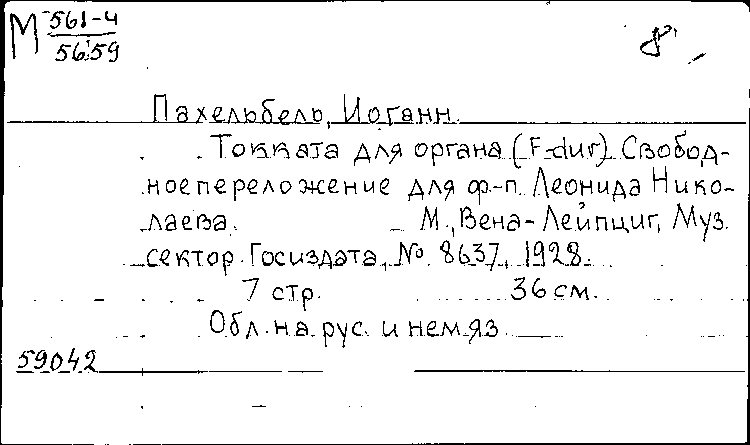 М 561-4
5659
8°
Пахельбель, Иоганн.
Токката для органа (F-dur). Свобод-
ное переложение для ф-п. Леонида Нико-
лаева. М., Вена-Лейпциг, Муз.
сектор Госиздата, № 8637, 1928.
7 стр. 36 см.
Обл. на рус. и нем. яз.
59042